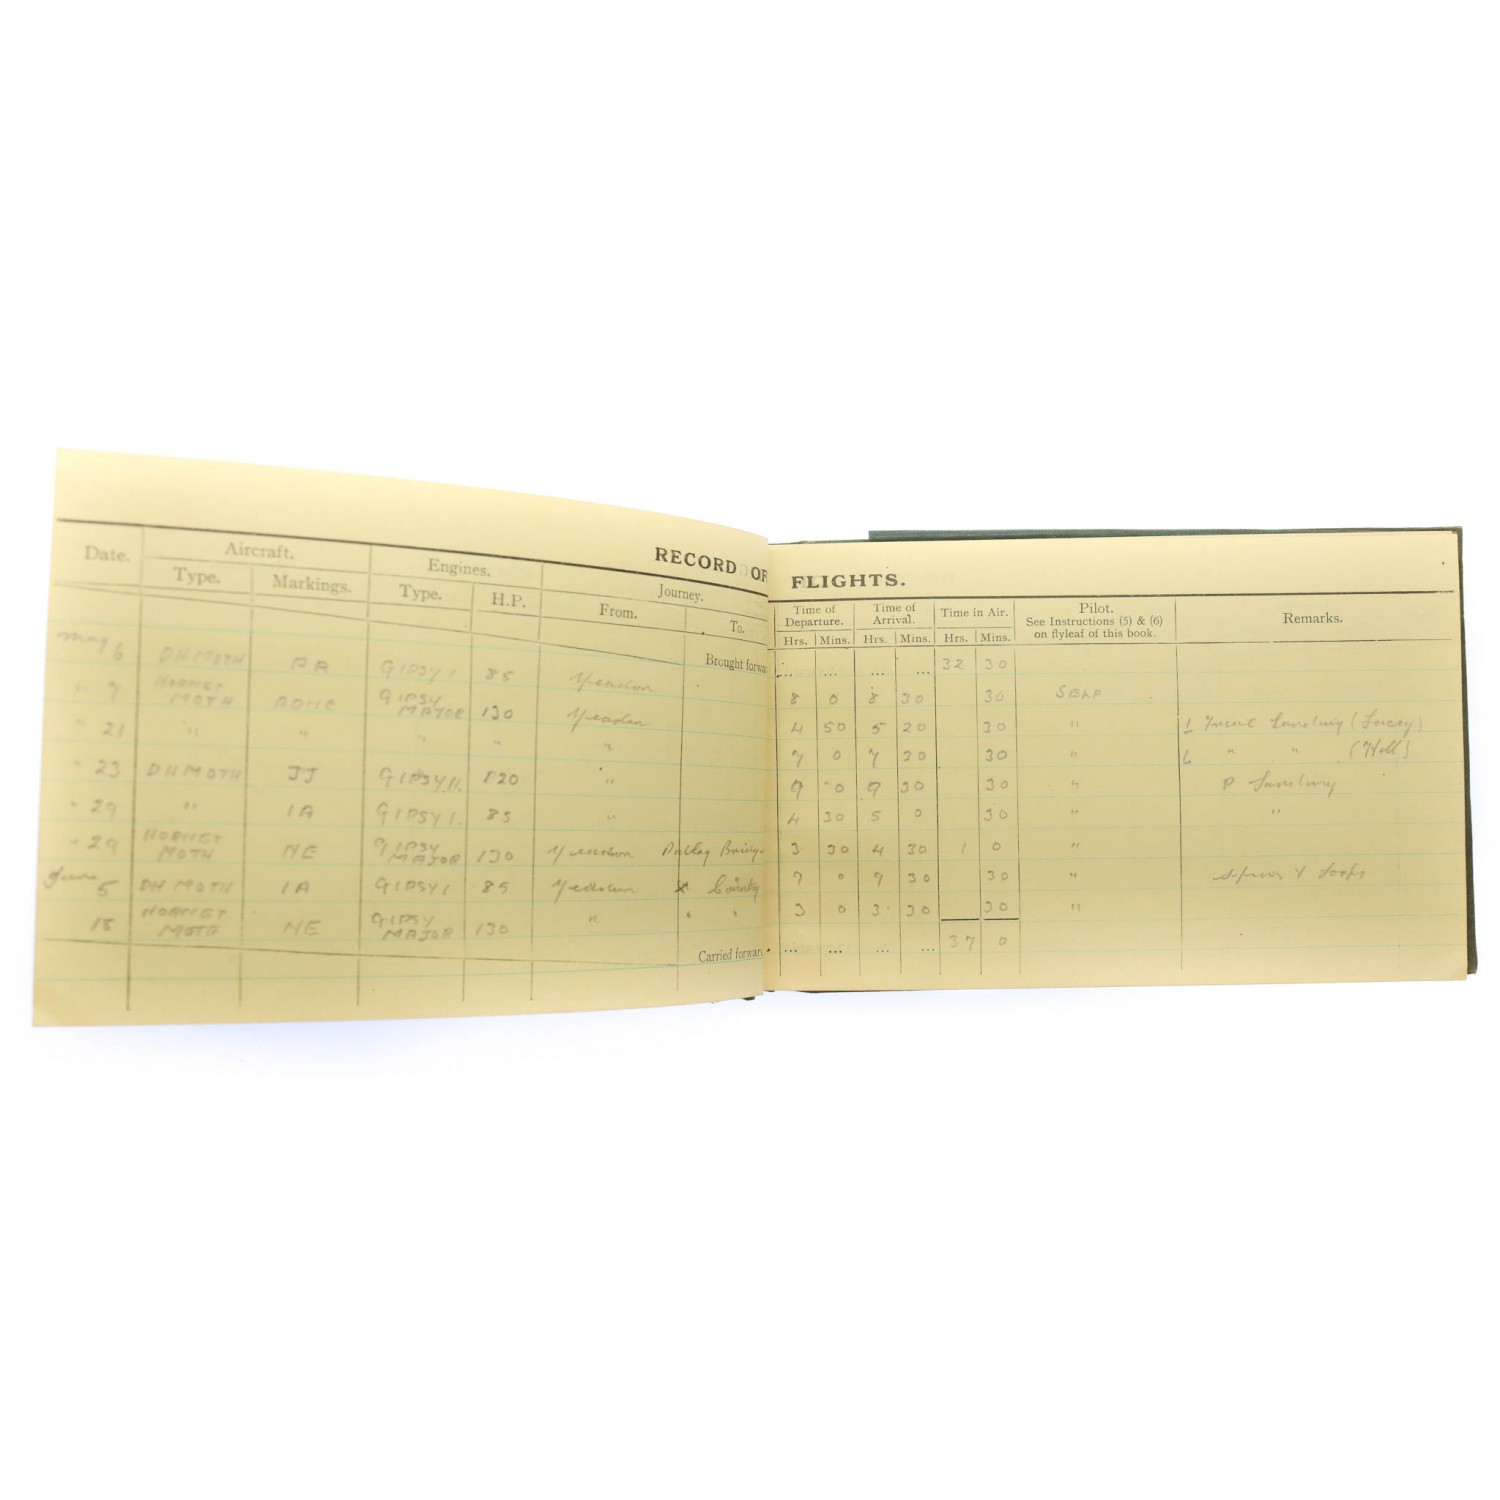 RECORD OF FLIGHTS.
Date. Aircraft. Engines. Journey. Time of Departure. Time of Arrival. Time in Air. Pilot. See Instructions (5) & (6) on flyleaf of this book. Remarks.
Type. Markings. Type. H.P. From. To. Hrs. Mins. Hrs. Mins. Hrs. Mins.
Brought forwar ... ... ... ... 32 30
May 6 DH MOTH GIPSY I 85 Yeadon 8 0 8 30 30 SELF
" 7 HORNET MOTH GIPSY MAJOR 130 Yeadon 4 50 5 20 30 " 1 Landing (Lacey)
" 21 " " " " " 7 0 7 20 30 " " " (Hill)
" 23 DH MOTH JJ GIPSY II. 120 " 9 0 9 30 30 " P Landing
" 29 " IA GIPSY I. 85 " 4 30 5 0 30 " "
" 29 HORNET MOTH NE GIPSY MAJOR 130 Yeadon 3 30 4 30 1 0 "
June 5 DH MOTH IA GIPSY I 85 Yeadon X 9 0 9 30 30 " Spins & Loops
18 HORNET MOTH NE GIPSY MAJOR 130 " " " 3 0 3 30 30 "
Carried forward ... ... ... ... 37 0